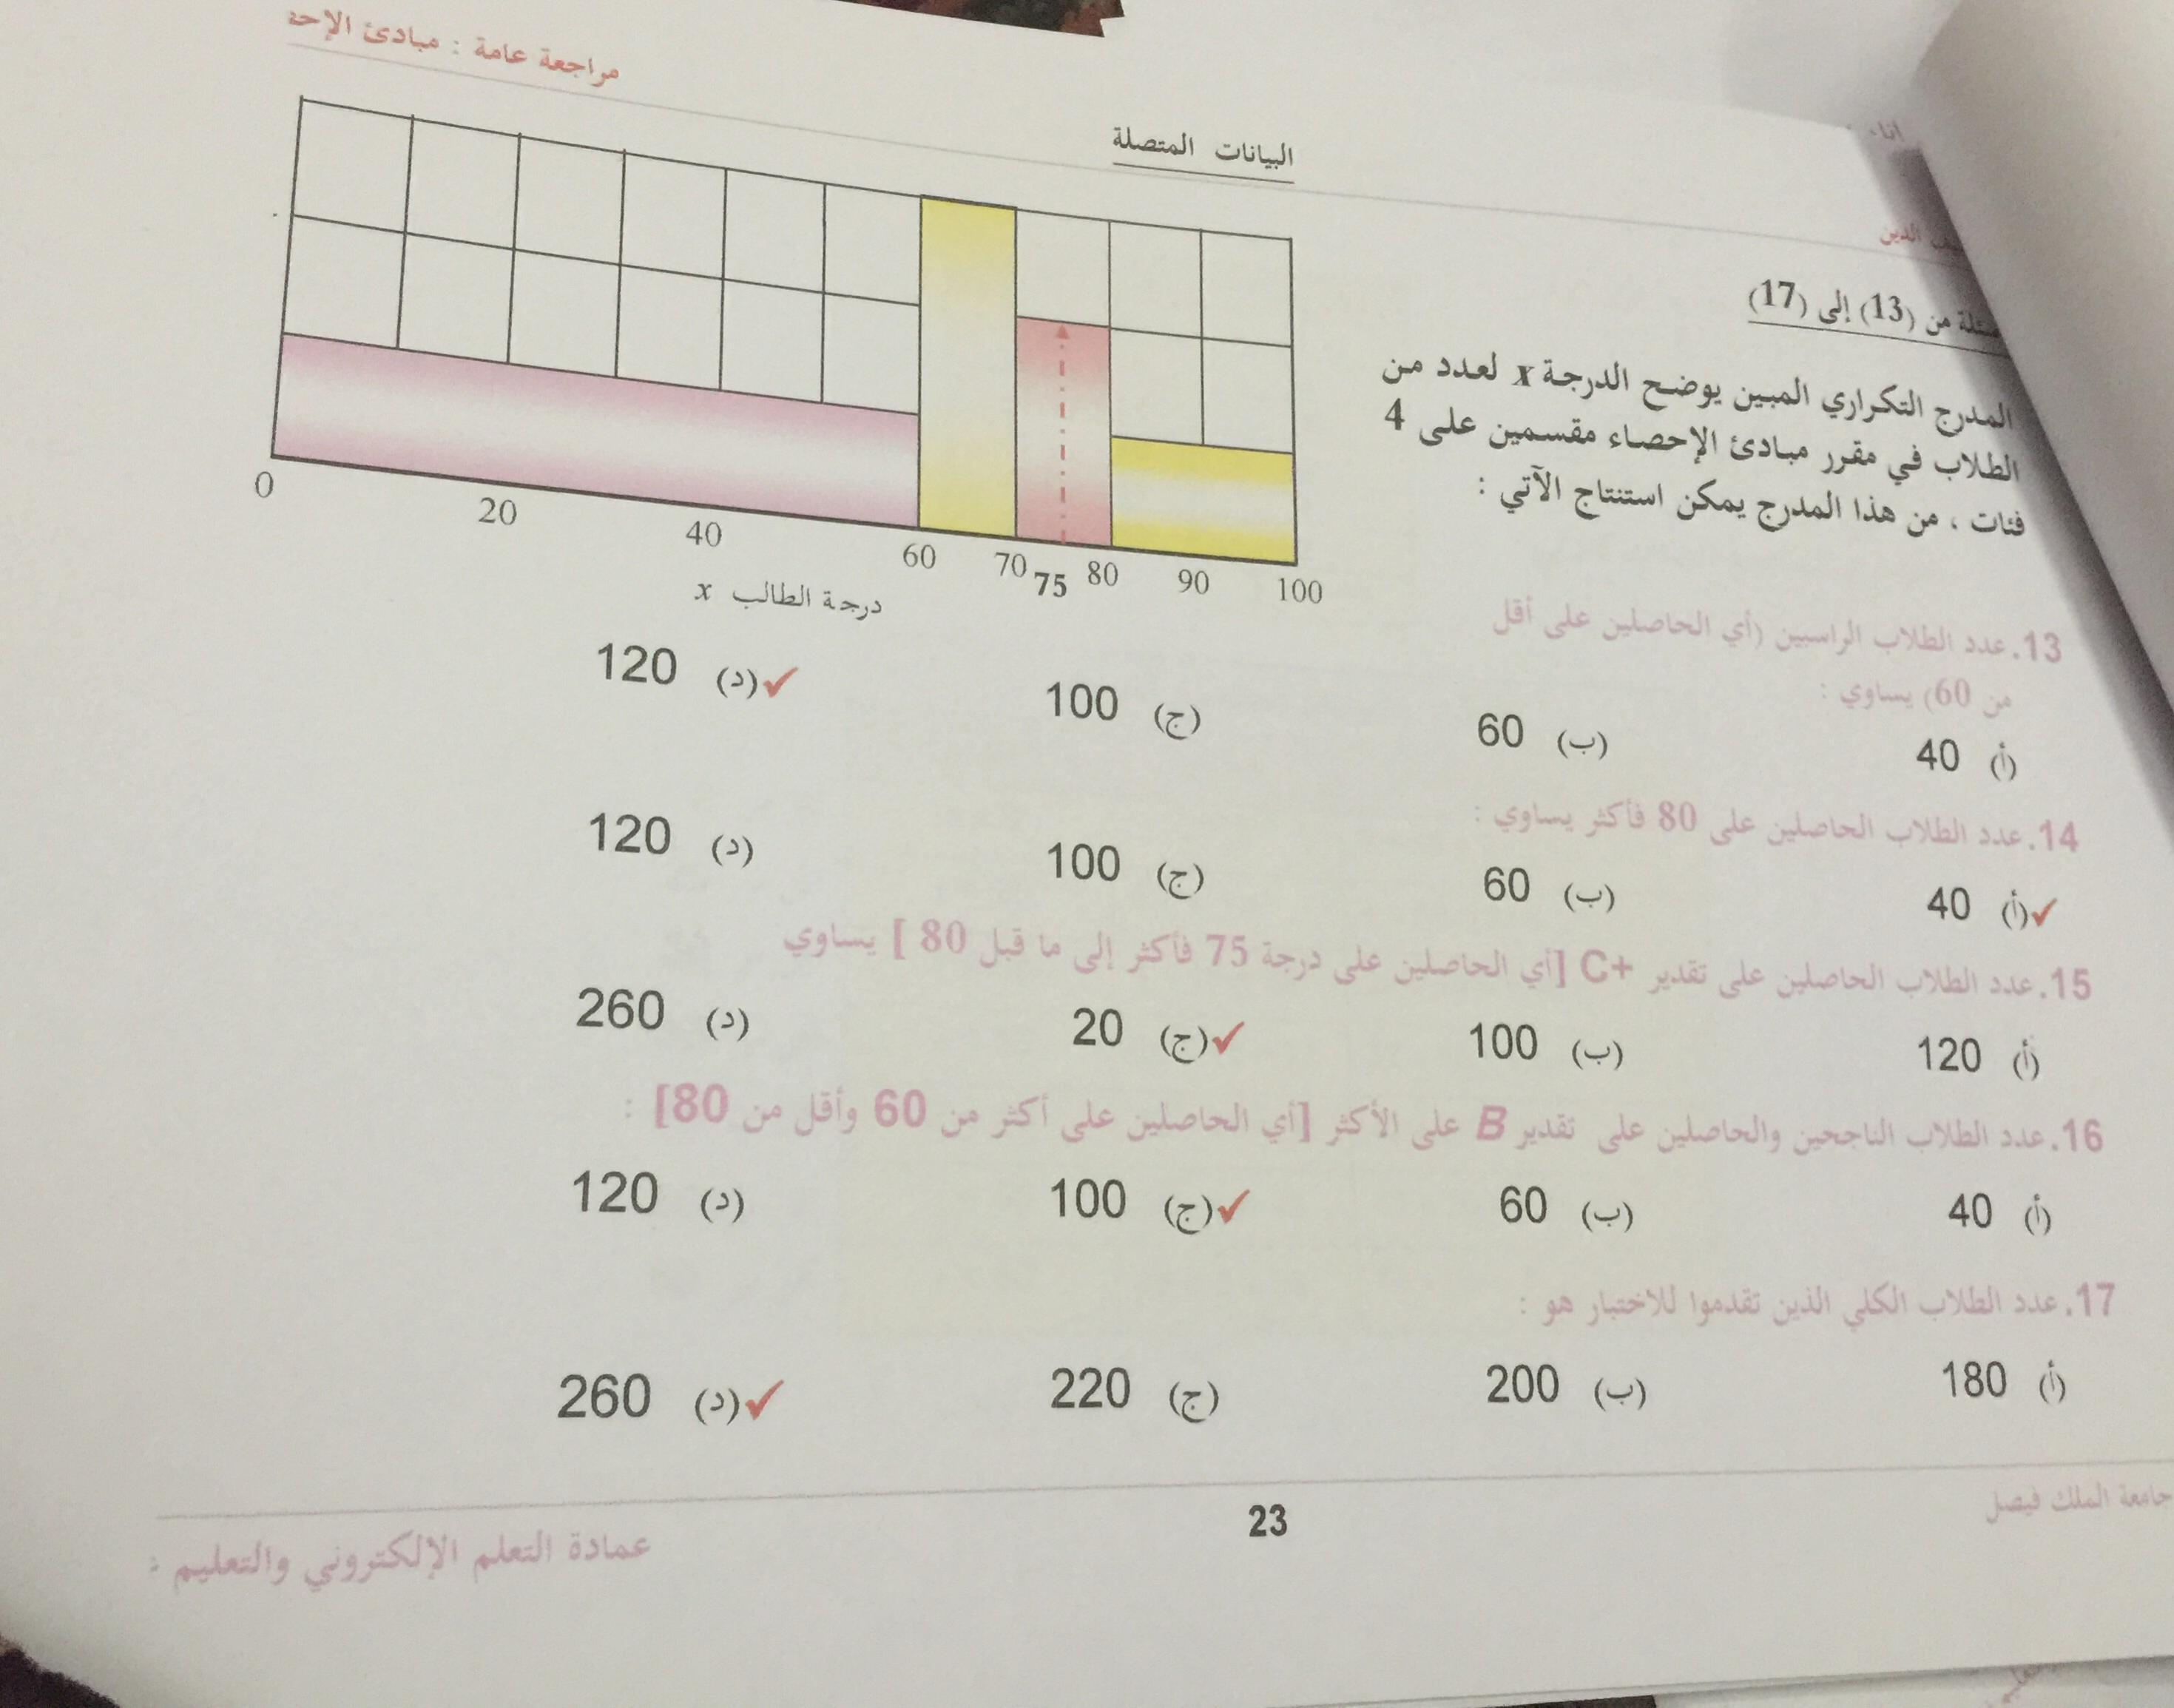 مراجعة عامة : مبادئ
البيانات المتصلة
من (13) إلى (17)
المدرج التكراري المبين يوضح الدرجة x لعدد من
الطلاب في مقرر مبادئ الإحصاء مقسمين على 4
فئات ، من هذا المدرج يمكن استنتاج الآتي :
0 20 40 60 70 75 80 90 100
درجة الطالب x
13. عدد الطلاب الراسبين (أي الحاصلين على أقل
من 60) يساوي :
(أ) 40 (ب) 60 (ج) 100 ✓(د) 120
14. عدد الطلاب الحاصلين على 80 فأكثر يساوي :
✓(أ) 40 (ب) 60 (ج) 100 (د) 120
15. عدد الطلاب الحاصلين على تقدير C+ [أي الحاصلين على درجة 75 فأكثر إلى ما قبل 80 ] يساوي
(أ) 120 (ب) 100 ✓(ج) 20 (د) 260
16. عدد الطلاب الناجحين والحاصلين على تقدير B على الأكثر [أي الحاصلين على أكثر من 60 وأقل من 80] :
(أ) 40 (ب) 60 ✓(ج) 100 (د) 120
17. عدد الطلاب الكلي الذين تقدموا للاختبار هو :
(أ) 180 (ب) 200 (ج) 220 ✓(د) 260
جامعة الملك فيصل
23
عمادة التعلم الإلكتروني والتعليم